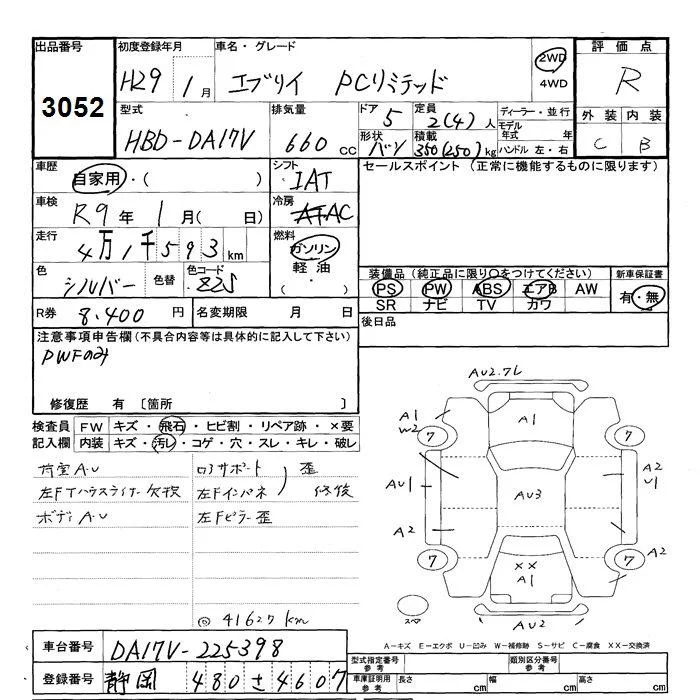 出品番号 初度登録年月 車名・グレード 評価点
3052 H29 1月 エブリイ PCリミテッド 2WD 4WD R
型式 排気量 ドア 定員 ディーラー・並行 外装 内装
HBD-DA17V 660cc 5 2(4)人 モデル年式 年 C B
形状 積載 ハンドル 左・右
バン 350(250)kg
車歴 シフト セールスポイント(正常に機能するものに限ります)
自家用・( ) IAT
車検 冷房
R9年 1月( 日) AC
走行 燃料
4万1千593km ガソリン
色 色替 色コード 軽油
シルバー Z2S ( ・ )
装備品(純正品に限り○をつけてください) 新車保証書
PS PW ABS エアB AW 有・無
SR ナビ TV カワ
R券 8,400円 名変期限 月 日 後日品
注意事項申告欄(不具合内容等は具体的に記入して下さい)
PWFのみ
修復歴 有 〔箇所 〕
検査員 FW キズ・飛石・ヒビ割・リペア跡・×要
記入欄 内装 キズ・汚レ・コゲ・穴・スレ・キレ・破レ
荷室A.U ロアサポート 歪
左F 欠投 左Fインパネ 修復
ボディA.U 左Fピラー歪
◎ 41627km
AU2.7L
A1
W2
A1
7
7
AU1
AU3
A2
U1
A2
7
7
A2
××
A1
AU2
スペ
A-キズ E-エクボ U-凹み W-補修跡 S-サビ C-腐食 XX-交換済
車台番号 DA17V-225398 型式指定番号 参考 類別区分番号 参考
登録番号 静岡 480 ±4607 車庫証明用 参考 長さ cm 幅 cm 高さ cm